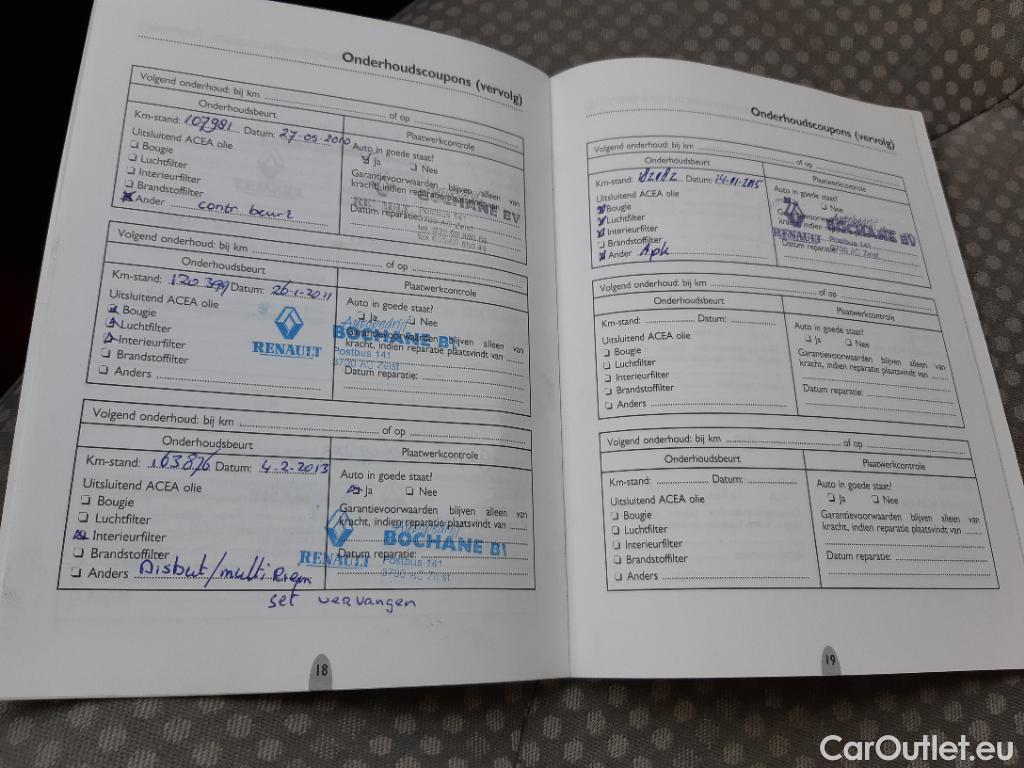 Onderhoudscoupons (vervolg)
Volgend onderhoud: bij km ........ of op ........
Onderhoudsbeurt
Plaatwerkcontrole
Km-stand: 107981 Datum: 27-05-2010
Uitsluitend ACEA olie
Bougie
Luchtfilter
Interieurfilter
Brandstoffilter
Ander contr beurt
Auto in goede staat?
Ja Nee
Garantievoorwaarden blijven alleen van
kracht, indien reparatie plaatsvindt
Datum reparatie:
RENAULT
BOCHANE BV
Postbus 141
Volgend onderhoud: bij km ........ of op ........
Onderhoudsbeurt
Plaatwerkcontrole
Km-stand: 120399 Datum: 26-1-2011
Uitsluitend ACEA olie
Bougie
Luchtfilter
Interieurfilter
Brandstoffilter
Anders
Auto in goede staat?
Ja Nee
Garantievoorwaarden blijven alleen van
kracht, indien reparatie plaatsvindt van
Datum reparatie:
RENAULT
Autobedrijf
BOCHANE BV
Postbus 141
3700 AC Zeist
Volgend onderhoud: bij km ........ of op ........
Onderhoudsbeurt
Plaatwerkcontrole
Km-stand: 163876 Datum: 4-2-2013
Uitsluitend ACEA olie
Bougie
Luchtfilter
Interieurfilter
Brandstoffilter
Anders Disbut/multi Riem
set vervangen
Auto in goede staat?
Ja Nee
Garantievoorwaarden blijven alleen van
kracht, indien reparatie plaatsvindt van
Datum reparatie:
RENAULT
Autobedrijf
BOCHANE BV
Postbus 141
3700 AC Zeist
18
Onderhoudscoupons (vervolg)
Volgend onderhoud: bij km ........ of op ........
Onderhoudsbeurt
Plaatwerkcontrole
Km-stand: 182182 Datum: 14-01-2015
Uitsluitend ACEA olie
Bougie
Luchtfilter
Interieurfilter
Brandstoffilter
Ander Apk
Auto in goede staat?
Nee
kracht, indien
Datum reparatie:
RENAULT
Autobedrijf
BOCHANE BV
Postbus 141
3700 AC Zeist
Volgend onderhoud: bij km ........ of op ........
Onderhoudsbeurt
Plaatwerkcontrole
Km-stand: ........ Datum: ........
Uitsluitend ACEA olie
Bougie
Luchtfilter
Interieurfilter
Brandstoffilter
Anders
Auto in goede staat?
Ja Nee
Garantievoorwaarden blijven alleen van
kracht, indien reparatie plaatsvindt van
Datum reparatie:
Volgend onderhoud: bij km ........ of op ........
Onderhoudsbeurt
Plaatwerkcontrole
Km-stand: ........ Datum: ........
Uitsluitend ACEA olie
Bougie
Luchtfilter
Interieurfilter
Brandstoffilter
Anders
Auto in goede staat?
Ja Nee
Garantievoorwaarden blijven alleen van
kracht, indien reparatie plaatsvindt van
Datum reparatie:
19
CarOutlet.eu